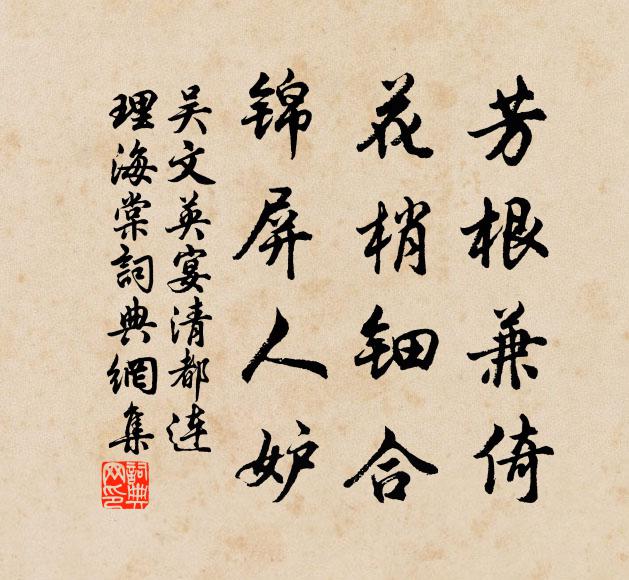 芳根兼倚
花梢钿合
锦屏人妒
吴文英宴清都连
理海棠詞典網集
詞典网印